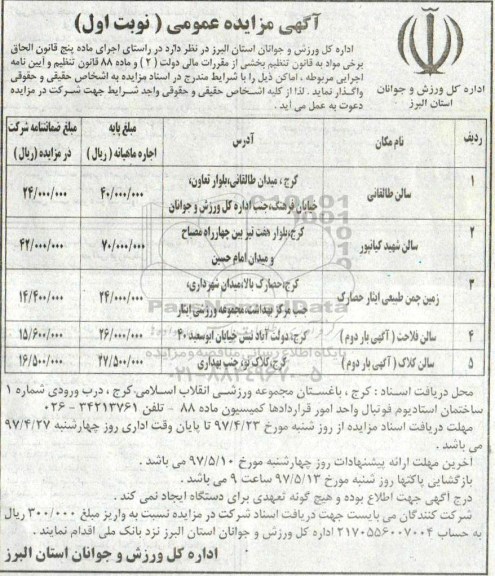 آگهی مزایده عمومی ( نوبت اول)
اداره کل ورزش و جوانان
استان البرز
اداره کل ورزش و جوانان استان البرز در نظر دارد در راستای اجرای ماده پنج قانون الحاق
برخی مواد به قانون تنظیم بخشی از مقررات مالی دولت ( ۲ ) و ماده ۸۸ قانون تنظیم و آیین نامه
اجرایی مربوطه ، اماکن ذیل را با شرایط مندرج در اسناد مزایده به اشخاص حقیقی و حقوقی
واگذار نماید . لذا از کلیه اشخاص حقیقی و حقوقی واجد شرایط جهت شرکت در مزایده
دعوت به عمل می آید .
ردیف نام مکان آدرس مبلغ پایه اجاره ماهیانه ( ریال ) مبلغ ضمانتنامه شرکت در مزایده (ریال )
۱ سالن طالقانی کرج ، میدان طالقانی،بلوار تعاون، خیابان فرهنگ،جنب اداره کل ورزش و جوانان ۴۰/۰۰۰/۰۰۰ ۲۴/۰۰۰/۰۰۰
۲ سالن شهید کیانپور کرج،بلوار هفت تیر بین چهارراه مصباح و میدان امام حسین ۷۰/۰۰۰/۰۰۰ ۴۲/۰۰۰/۰۰۰
۳ زمین چمن طبیعی ایثار حصارک کرج،حصارک بالا،میدان شهرداری، جنب مرکز بهداشت،مجموعه ورزشی ایثار ۲۴/۰۰۰/۰۰۰ ۱۴/۴۰۰/۰۰۰
۴ سالن فلاحت ( آگهی بار دوم ) کرج،دولت آباد نبش خیابان ابوسعید ۲۰ ۲۶/۰۰۰/۰۰۰ ۱۵/۶۰۰/۰۰۰
۵ سالن کلاک ( آگهی بار دوم ) کرج،کلاک نو، جنب بهداری ۲۷/۵۰۰/۰۰۰ ۱۶/۵۰۰/۰۰۰
محل دریافت اسناد : کرج ، باغستان مجموعه ورزشی انقلاب اسلامی،کرج ، درب ورودی شماره ۱
ساختمان استادیوم فوتبال واحد امور قراردادها کمیسیون ماده ۸۸ - تلفن ۳۴۲۱۳۷۶۱ - ۰۲۶
مهلت دریافت اسناد مزایده از روز شنبه مورخ ۹۷/۴/۲۳ تا پایان وقت اداری روز چهارشنبه ۹۷/۴/۲۷
می باشد .
آخرین مهلت ارائه پیشنهادات روز چهارشنبه مورخ ۹۷/۵/۱۰ می باشد .
بازگشایی پاکتها روز شنبه مورخ ۹۷/۵/۱۳ ساعت ۹ می باشد .
درج آگهی جهت اطلاع بوده و هیچ گونه تعهدی برای دستگاه ایجاد نمی کند .
شرکت کنندگان می بایست جهت دریافت اسناد شرکت در مزایده نسبت به واریز مبلغ ۳۰۰/۰۰۰ ریال
به حساب ۲۱۷۰۵۵۶۰۰۷۰۰۴ اداره کل ورزش و جوانان استان البرز نزد بانک ملی اقدام نمایند .
اداره کل ورزش و جوانان استان البرز